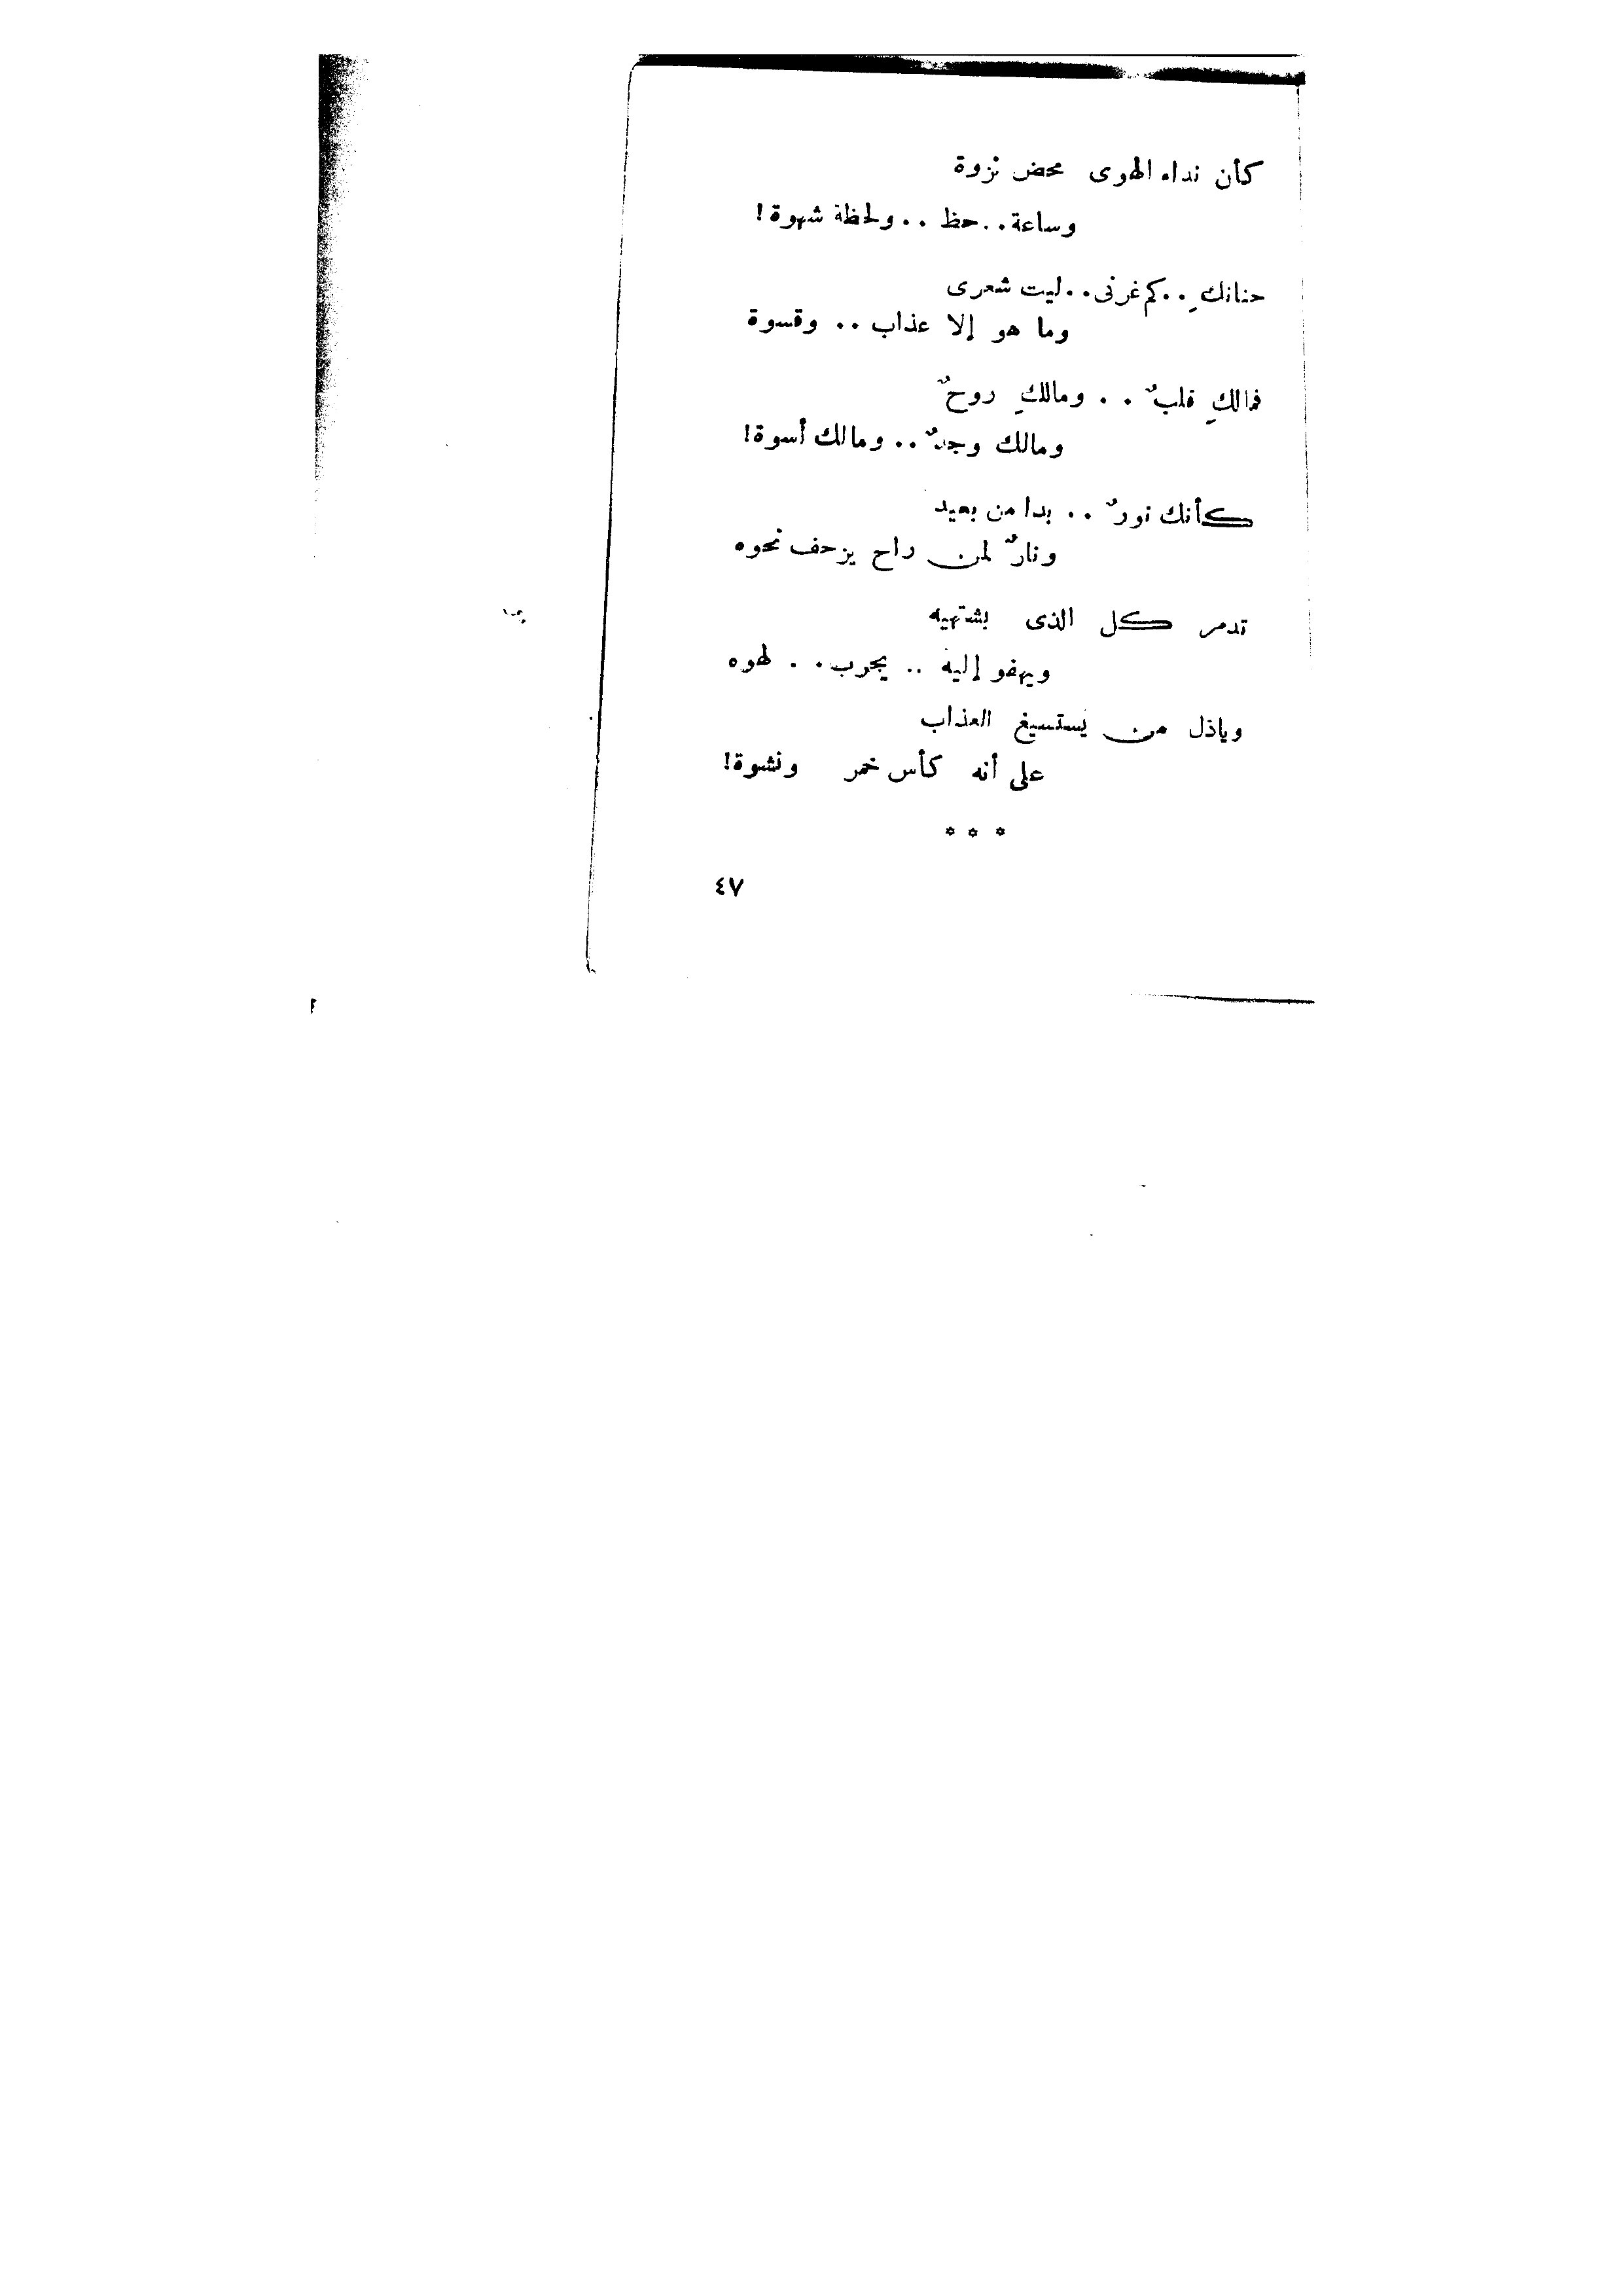 كأن نداء الهوى محض نزوة
وساعة..حظ ..ولحظة شهوة!
حنانكِ..كم غرنى..ليت شعرى
وما هو إلا عذاب .. وقسوة
فمالكِ قلبٌ .. ومالكِ روحٌ
ومالك وجدٌ .. ومالك أسوة!
كأنك نورٌ .. بدا من بعيد
ونارٌ لمن راح يزحف نحوه
تدمر كل الذى يشتهيه
ويهفو إليه .. يجرب.. لهوه
وياذل من يستسيغ العذاب
على أنه كأس خمر ونشوة!
* * *
٤٧